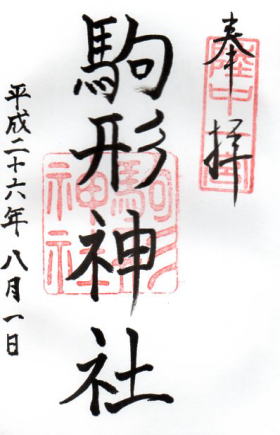 奉拝
陸中一宮
駒形神社
駒形神社
平成二十六年八月一日